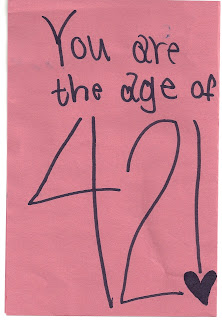 You are
the age of
42!